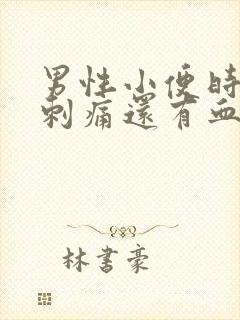 男性小便時
刺痛還有血
林書豪